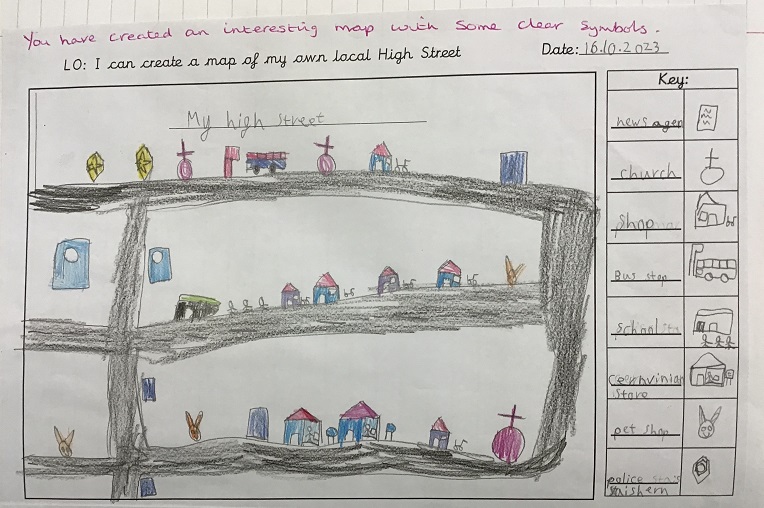 You have created an interesting map with some clear symbols.
LO: I can create a map of my own local High Street
Date: 16.10.2023
Key:
My high street
news agen
church
shop
Bus stop
school
Store
pet shop
police